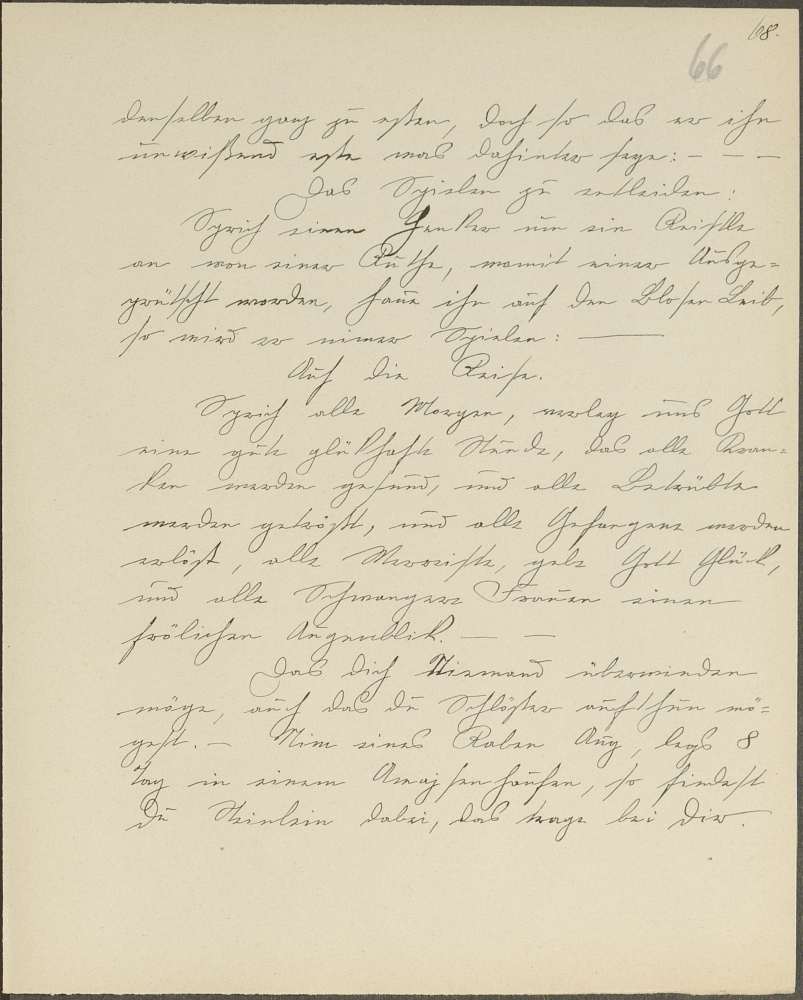 68.
66
denselben ganz zu essen, doch so das er ihn
unwißend esse was dahinter seye: - - -
Das Spielen zu entleiden:
Sprich einen Henker um ein Reißle
an von einer Ruthe, womit einer Ausge=
prütscht worden, haue ihn auf den Blosen Leib,
so wird er nimer Spielen: —
Auf die Reise.
Sprich alle Morgen, verley uns Gott
eine gute glükhafte Stunde, das alle Kran=
ken werden gesund, und alle Betrübte
werden getröst, und alle Gefangene werden
erlöst, alle Verreiste, gebe Gott Glück,
und alle Schwangere Frauen einen
frölichen Augenblik. — —
Das dich Niemand überwinden
möge, auch das du Schlößer aufthun mö=
gest. — Nim eines Raben Aug, legs 8
tag in einem Amajsenhaufen, so findest
du Steinlein dabei, das trage bei dir.